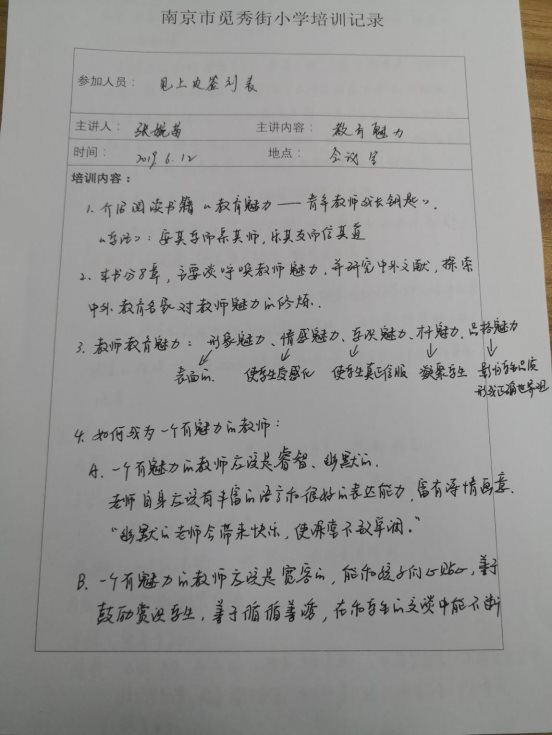 南京市觅秀街小学培训记录
参加人员： 见上次签到表
主讲人： 张婉茵 主讲内容： 教育魅力
时间： 2019.6.12 地点： 会议室
培训内容：
1. 介绍阅读书籍《教育魅力——青年教师成长钥匙》.
《学记》：安其学而亲其师，乐其友而信其道
2. 本书分8章，主要谈呼唤教师魅力，并研究中外文献，探索
中外教育名家对教师魅力的修炼.
3. 教师教育魅力：形象魅力、情感魅力、学识魅力、才魅力、品格魅力
表面的 使学生受感化 使学生真正信服 凝聚学生 影响学生品质
形成正确世界观
4. 如何成为一个有魅力的教师：
A. 一个有魅力的教师应该是睿智、幽默的.
老师自身应该有丰富的语言和很好的表达能力，富有诗情画意.
“幽默的老师会带来快乐，使课堂不致单调.”
B. 一个有魅力的教师应该是宽容的，能和孩子们心贴心，善于
鼓励赏识学生，善于循循善诱，在和学生的交谈中能不断